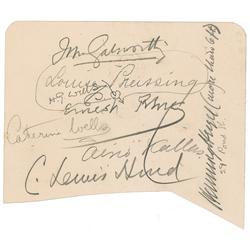 John Galsworthy
Louise Preussing
H.G. Wells
Ernest Rhys
Catherine Wells
Aino Kallas
C. Lewis Hind